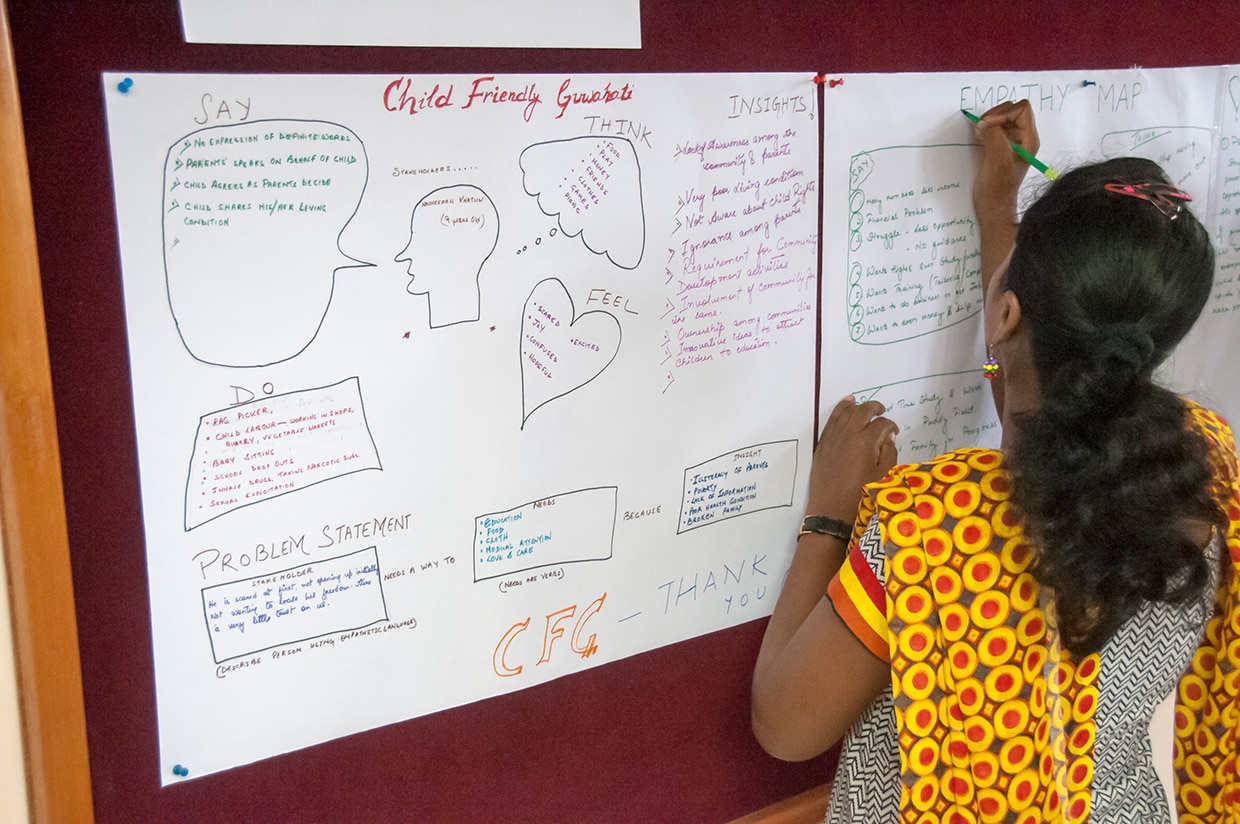 Child Friendly Guwahati
SAY
NO EXPRESSION OF DEFINITE WORDS
PARENTS SPEAKS ON BEHALF OF CHILD
CHILD AGREES AS PARENTS DECIDE
CHILD SHARES HIS/HER LIVING
CONDITION
STAKEHOLDERS.....
KHATUN
(9 YEARS OLD)
THINK
FOOD
PLAY
MONEY
FRIENDS
CLOTHES
GAMES
PICNIC
FEEL
SCARED
JOY
CONFUSED
EXCITED
HOPEFUL
INSIGHTS!
Lack of Awareness among the
community & parents
Very poor living condition
Not aware about child Rights
Ignorance among parents
Requirement for Community
Development activities
Involvement of community for
the same.
Ownership among communities
Innovative ideas to attract
Children to education.
DO
RAG PICKER,
CHILD LABOUR — WORKING IN SHOPS,
QUARRY, VEGETABLE MARKETS
BABY SITTING
SCHOOL DROP OUTS
INHALE DRUGS, TAKING NARCOTIC SUBS.
SEXUAL EXPLOITATION
PROBLEM STATEMENT
STAKEHOLDER
He is scared at first, not opening up initially
Not wanting to his freedom. There
is very little trust on us.
(DESCRIBE PERSON USING EMPATHETIC LANGUAGE)
NEEDS A WAY TO
NEEDS
EDUCATION
FOOD
CLOTH
MEDICAL ATTENTION
LOVE & CARE
(NEEDS ARE VERBS)
BECAUSE
INSIGHT
ILLITERACY OF PARENTS
POVERTY
LACK OF INFORMATION
POOR HEALTH CONDITION
BROKEN FAMILY
CFG — THANK
YOU
EMPATHY MAP
SAY
1 Many members less income
2 Financial Problem
3 Struggle - Less opportunity
- No guidance
4 Wants Higher Study
5 Wants Training (Tailoring
6 Wants to do business
7 Wants to earn money & help
THINK
Time Study & Work
in Paddy Field.
Family in